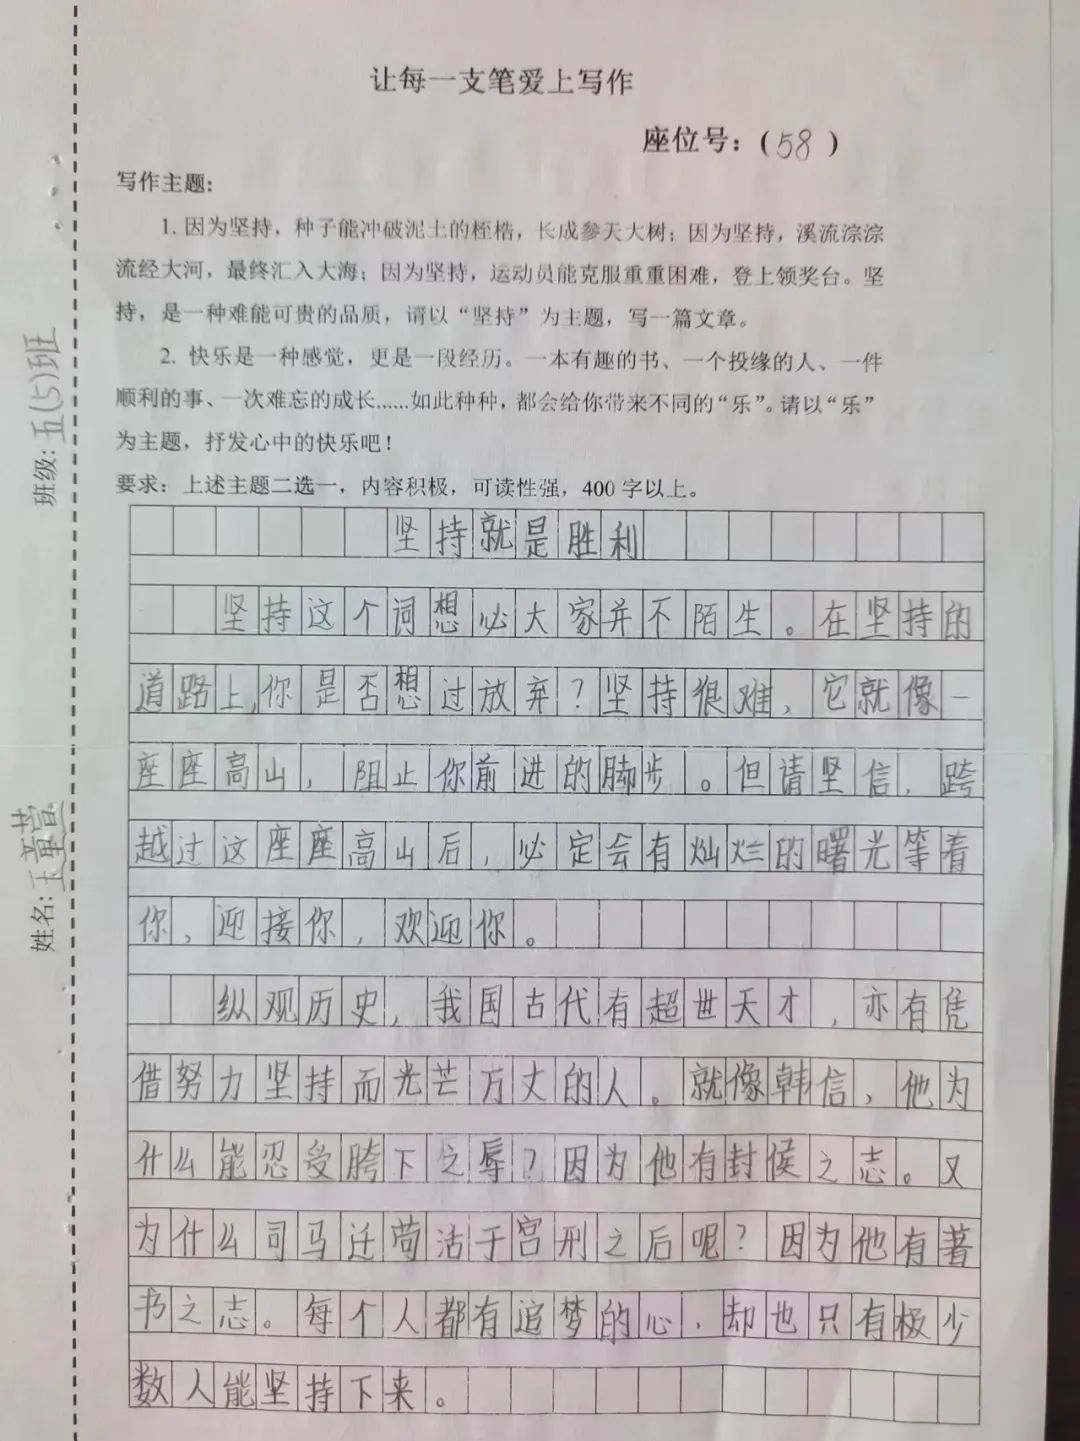 让每一支笔爱上写作
座位号：(58)
写作主题：
1. 因为坚持，种子能冲破泥土的桎梏，长成参天大树；因为坚持，溪流淙淙
流经大河，最终汇入大海；因为坚持，运动员能克服重重困难，登上领奖台。坚
持，是一种难能可贵的品质，请以“坚持”为主题，写一篇文章。
2. 快乐是一种感觉，更是一段经历。一本有趣的书、一个投缘的人、一件
顺利的事、一次难忘的成长......如此种种，都会给你带来不同的“乐”。请以“乐”
为主题，抒发心中的快乐吧！
要求：上述主题二选一，内容积极，可读性强，400 字以上。
坚持就是胜利
坚持这个词想必大家并不陌生。在坚持的
道路上,你是否想过放弃？坚持很难，它就像一
座座高山，阻止你前进的脚步。但请坚信，跨
越过这座座高山后，必定会有灿烂的曙光等着
你，迎接你，欢迎你。
纵观历史，我国古代有超世天才，亦有凭
借努力坚持而光芒万丈的人。就像韩信，他为
什么能忍受胯下之辱？因为他有封侯之志。又
为什么司马迁苟活于宫刑之后呢？因为他有著
书之志。每个人都有追梦的心，却也只有极少
数人能坚持下来。
班级: 五(5)班
姓名: 王童萱